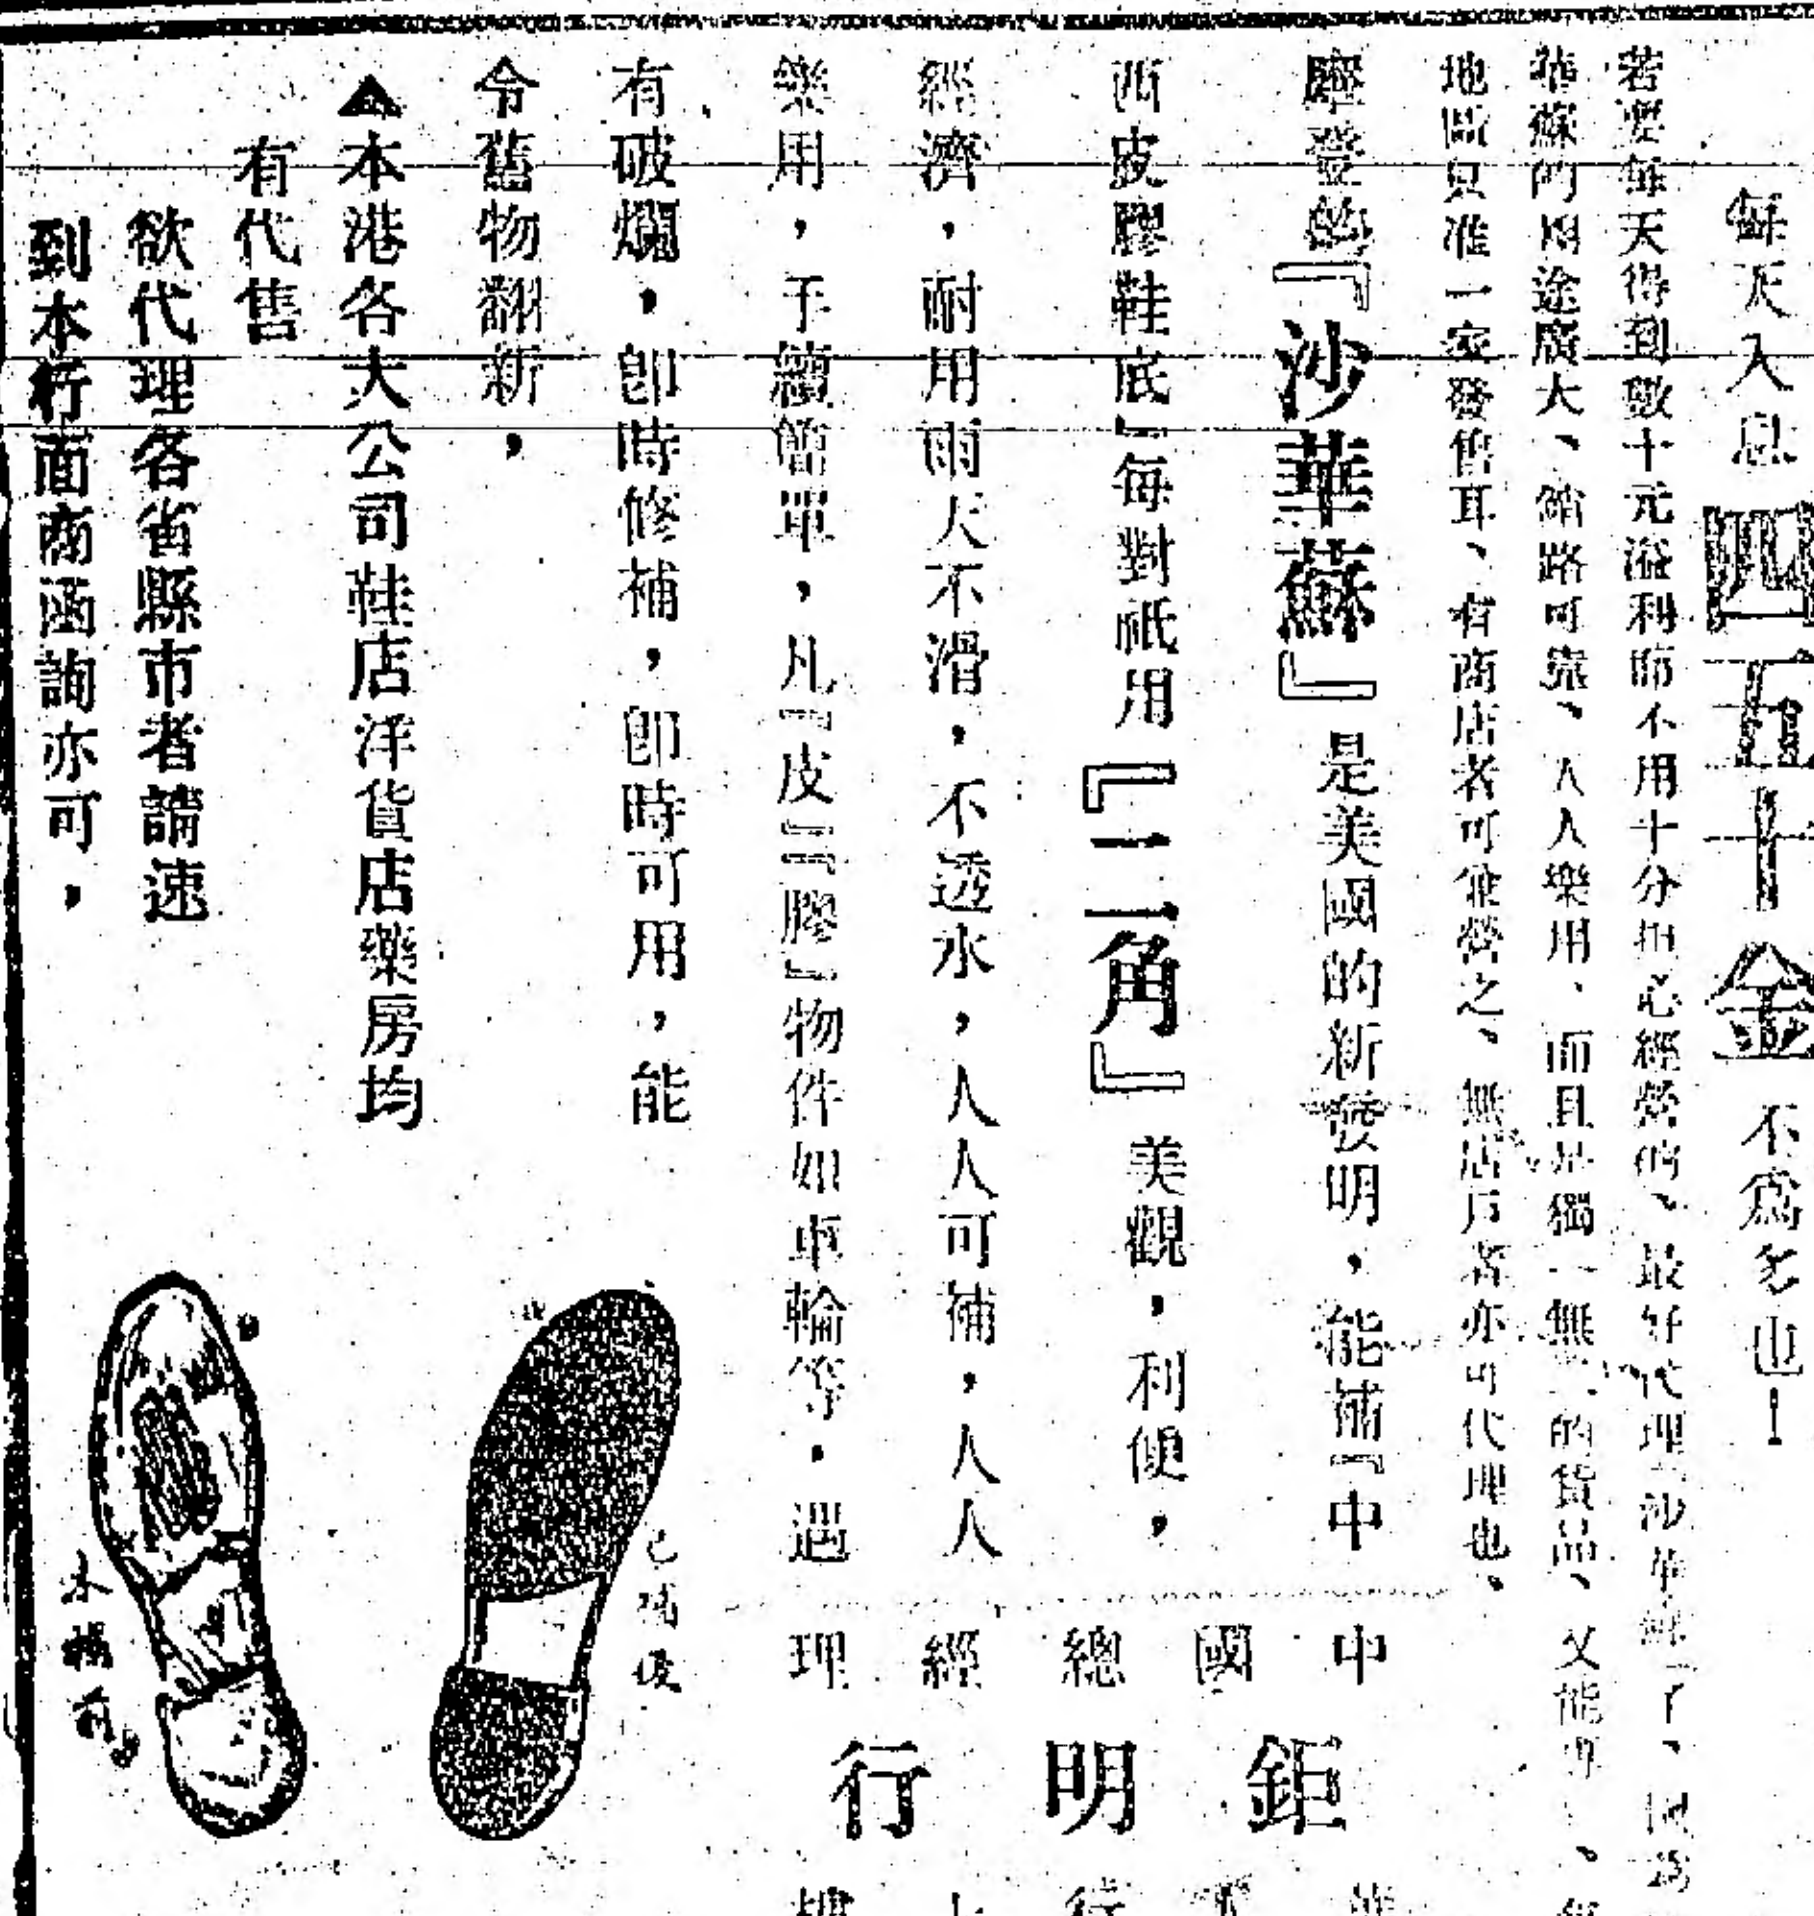 每天入息四五十金不爲多也！
若要每天得到數十元溢利而不用十分担心經營的、最好代理沙華蘇了、因爲
華蘇的用途廣大、銷路可靠、人人樂用、而且是獨一無二的貨品、又能
地區只准一家發售耳、有商店者可兼營之、無店戶者亦可代理也、
摩登的『沙華蘇』是美國的新發明，能補『中
西皮膠鞋底』每對祇用『二角』美觀，利便，
經濟，耐用雨天不滑，不透水，人人可補，人人
樂用，手續簡單，凡『皮』『膠』物件如車輪等，遇
有破爛，卽時修補，卽時可用，能
令舊物翻新，
▲本港各大公司鞋店洋貨店藥房均
有代售
欲代理各省縣市者請速
到本行面商函詢亦可，
中國總經理
鉅明行
行
樓
已補後
未補前